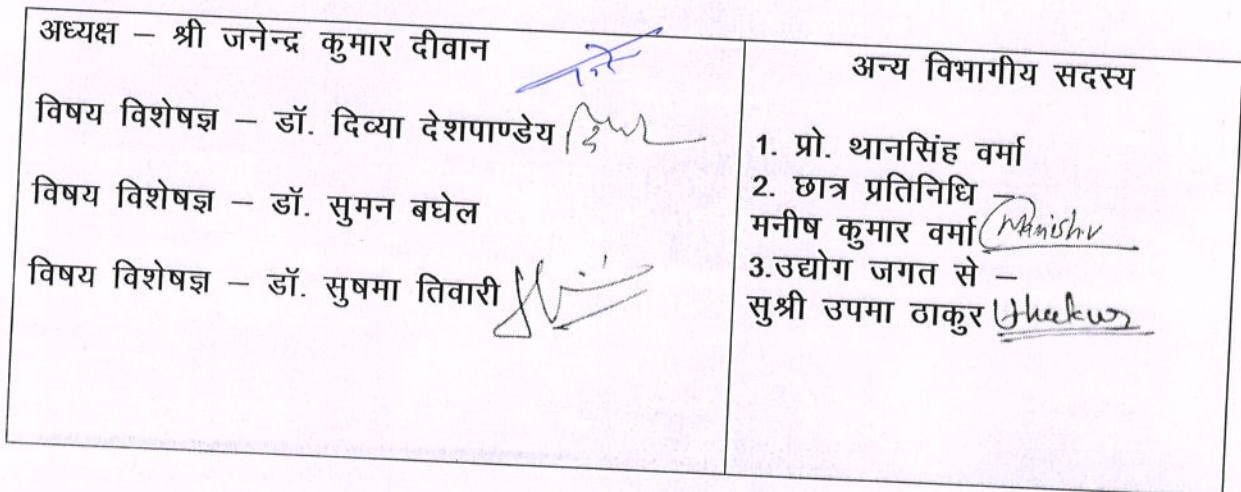 अध्यक्ष – श्री जनेन्द्र कुमार दीवान
विषय विशेषज्ञ – डॉ. दिव्या देशपाण्डेय
विषय विशेषज्ञ – डॉ. सुमन बघेल
विषय विशेषज्ञ – डॉ. सुषमा तिवारी
अन्य विभागीय सदस्य
1. प्रो. थानसिंह वर्मा
2. छात्र प्रतिनिधि –
मनीष कुमार वर्मा Manishv
3.उद्योग जगत से –
सुश्री उपमा ठाकुर Uthakur